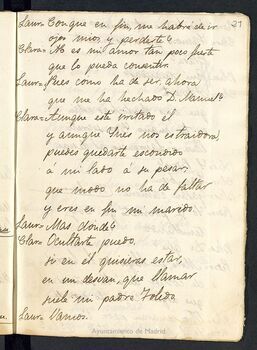 21
Laur= Conque en fin, me habré de ir
ojos mios y perderte?
Clara= No es mi amor tan poco fuerte
que lo pueda consentir.
Laur= Pues como ha de ser, ahora
que me ha hechado D. Manuel?
Clara= Aunque esté irritado él
y aunque Inés nos es traidora,
puedes quedarte escondido
á mi lado á su pesar;
que modo no ha de faltar
y eres en fin mi marido.
Laur= Mas donde?
Clar= Ocultarte puedo,
si en él quisieras estar,
en un desvan, que llamar
suele mi padre Toledo.
Laur= Vamos.
Ayuntamiento de Madrid